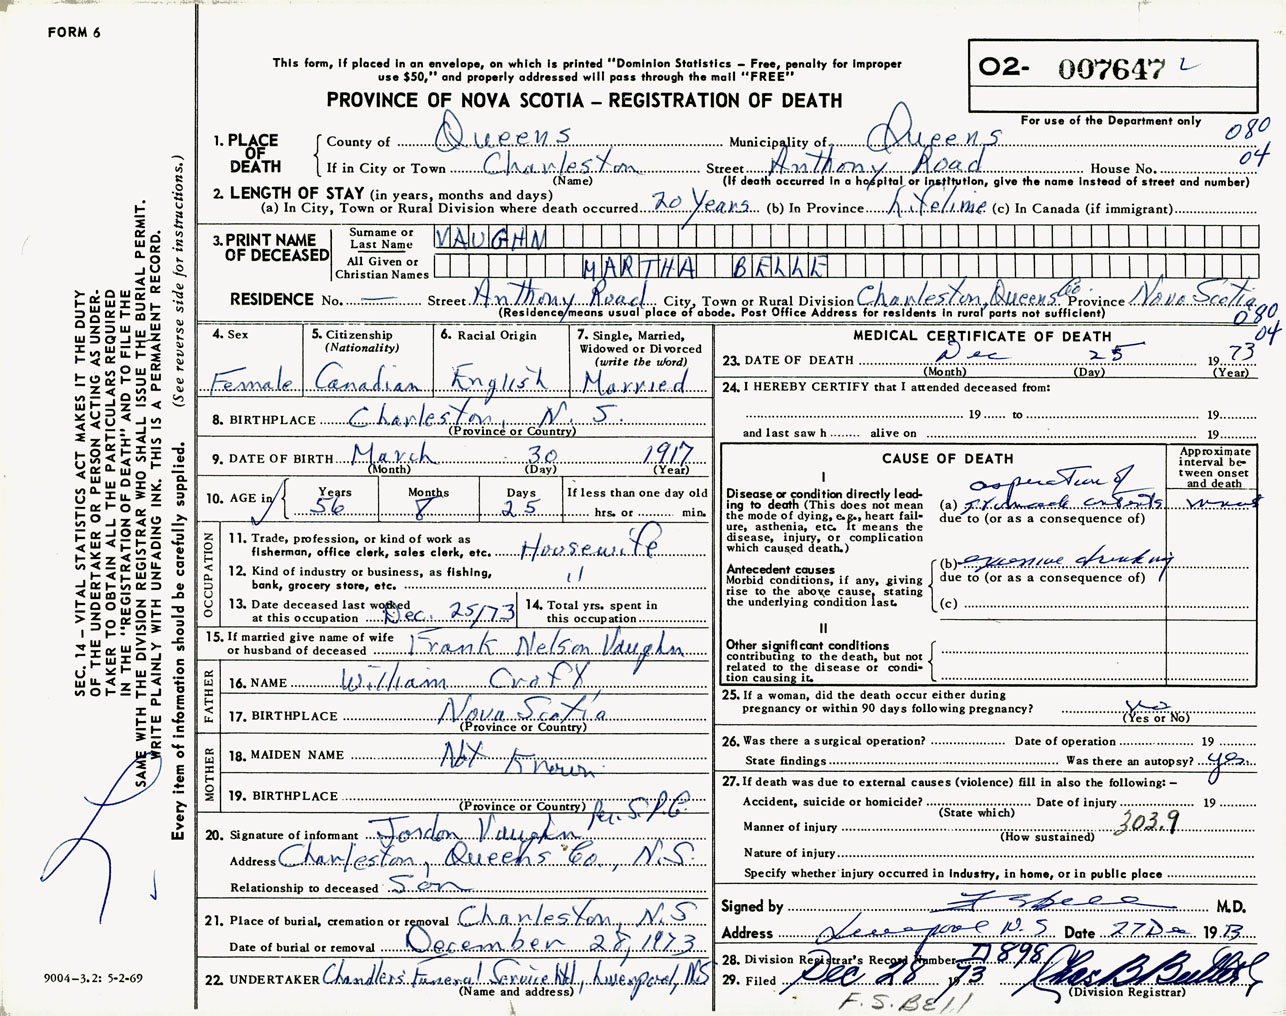 FORM 6
This form, if placed in an envelope, on which is printed "Dominion Statistics – Free, penalty for improper
use $50," and properly addressed will pass through the mail "FREE"
PROVINCE OF NOVA SCOTIA – REGISTRATION OF DEATH
02- 007647
For use of the Department only
080
04
1. PLACE OF DEATH
County of Queens Municipality of Queens
If in City or Town Charleston Street Anthony Road House No.
(Name) (If death occurred in a hospital or institution, give the name instead of street and number)
2. LENGTH OF STAY (in years, months and days)
(a) In City, Town or Rural Division where death occurred 20 Years (b) In Province Lifetime (c) In Canada (if immigrant)
3. PRINT NAME OF DECEASED
Surname or Last Name VAUGHN
All Given or Christian Names MARTHA BELLE
RESIDENCE No. — Street Anthony Road City, Town or Rural Division Charleston, Queens Co. Province Nova Scotia
(Residence means usual place of abode. Post Office Address for residents in rural parts not sufficient)
080
04
4. Sex
Female
5. Citizenship
(Nationality)
Canadian
6. Racial Origin
English
7. Single, Married,
Widowed or Divorced
(write the word)
Married
8. BIRTHPLACE Charleston, N. S.
(Province or Country)
9. DATE OF BIRTH March 30 1917
(Month) (Day) (Year)
10. AGE in
Years Months Days If less than one day old
56 8 25 hrs. or min.
OCCUPATION
11. Trade, profession, or kind of work as
fisherman, office clerk, sales clerk, etc. Housewife
12. Kind of industry or business, as fishing,
bank, grocery store, etc. "
13. Date deceased last worked
at this occupation Dec. 25/73
14. Total yrs. spent in
this occupation
15. If married give name of wife
or husband of deceased Frank Nelson Vaughn
FATHER
16. NAME William Croft
17. BIRTHPLACE Nova Scotia
(Province or Country)
MOTHER
18. MAIDEN NAME Not Known
19. BIRTHPLACE
(Province or Country)
20. Signature of informant Jordon Vaughn
Address Charleston, Queens Co., N.S.
Relationship to deceased Son
21. Place of burial, cremation or removal Charleston, N.S
Date of burial or removal December 28, 1973
22. UNDERTAKER Chandlers' Funeral Service Ltd, Liverpool, NS
(Name and address)
MEDICAL CERTIFICATE OF DEATH
23. DATE OF DEATH Dec 25 1973
(Month) (Day) (Year)
24. I HEREBY CERTIFY that I attended deceased from:
19 to 19
and last saw h alive on 19
CAUSE OF DEATH
Approximate
interval be-
tween onset
and death
I
Disease or condition directly lead-
ing to death (This does not mean
the mode of dying, e.g., heart fail-
ure, asthenia, etc. It means the
disease, injury, or complication
which caused death.)
aspiration of
(a) stomach contents
due to (or as a consequence of)
Antecedent causes
Morbid conditions, if any, giving
rise to the above cause, stating
the underlying condition last.
(b) excessive drinking
due to (or as a consequence of)
(c)
II
Other significant conditions
contributing to the death, but not
related to the disease or condi-
tion causing it.
25. If a woman, did the death occur either during
pregnancy or within 90 days following pregnancy? no
(Yes or No)
26. Was there a surgical operation? Date of operation 19
State findings Was there an autopsy? yes
27. If death was due to external causes (violence) fill in also the following: –
Accident, suicide or homicide? Date of injury 19
(State which)
Manner of injury 303.9
(How sustained)
Nature of injury
Specify whether injury occurred in industry, in home, or in public place
Signed by M.D.
Address Liverpool N. S Date 27 De 1973
28. Division Registrar's Record Number 898
29. Filed Dec 28 1973
(Division Registrar)
F.S. BELL
SEC. 14 – VITAL STATISTICS ACT MAKES IT THE DUTY
OF THE UNDERTAKER OR PERSON ACTING AS UNDER-
TAKER TO OBTAIN ALL THE PARTICULARS REQUIRED
IN THE "REGISTRATION OF DEATH" AND TO FILE THE
SAME WITH THE DIVISION REGISTRAR WHO SHALL ISSUE THE BURIAL PERMIT.
WRITE PLAINLY WITH UNFADING INK. THIS IS A PERMANENT RECORD.
Every item of information should be carefully supplied. (See reverse side for instructions.)
9004–3.2: 5-2-69